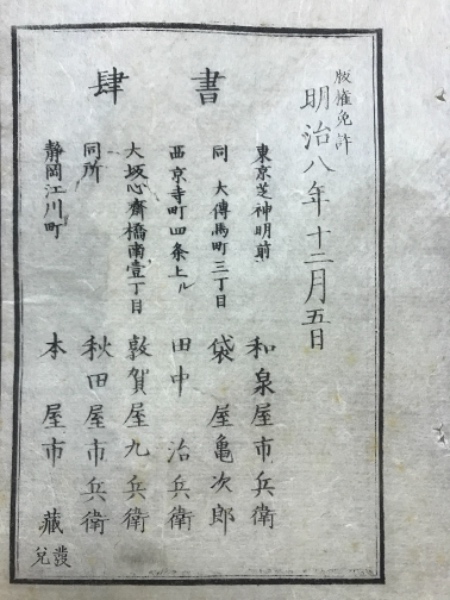 版權免許
明治八年十二月五日
書肆
東京芝神明前 和泉屋市兵衛
同 大傳馬町三丁目 袋屋亀次郎
西京寺町四条上ル 田中治兵衛
大坂心齋橋南壹丁目 敦賀屋九兵衛
同所 秋田屋市兵衛
靜岡江川町 本屋市藏
發兌